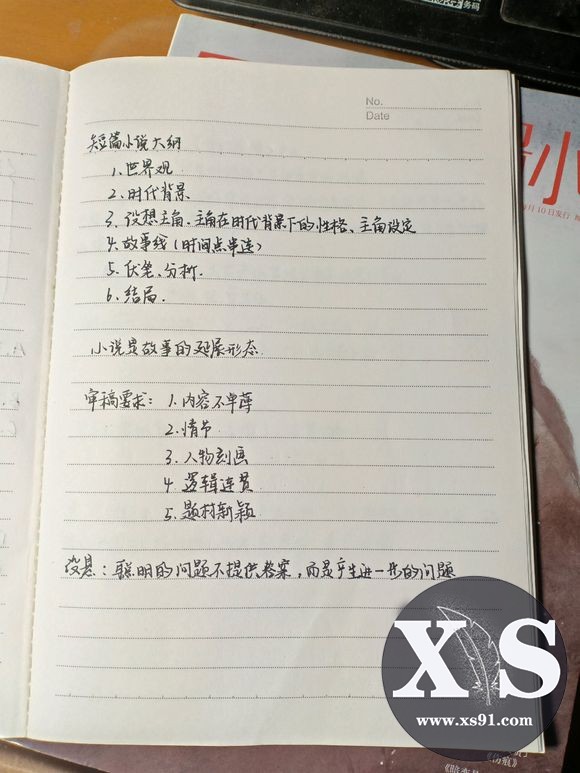 务码
No.
Date
短篇小说大纲
1、世界观
2、时代背景
3、设想主角、主角在时代背景下的性格、主角设定
4、故事线（时间点串连）
5、伏笔、分析.
6、结局.
小说是故事的延展形态
审稿要求：1.内容不单薄
2.情节
3.人物刻画
4.逻辑连贯
5.题材新颖
设悬：聪明的问题不提供答案，而是产生进一步的问题
小
月10日发行
XS
www.xs91.com